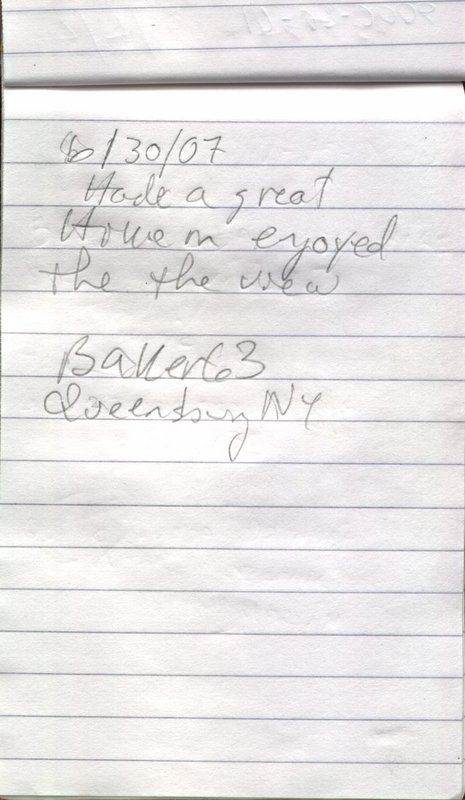 /30/07
Hade a great
enjoyed
the the view
Baker63
Queensbury NY